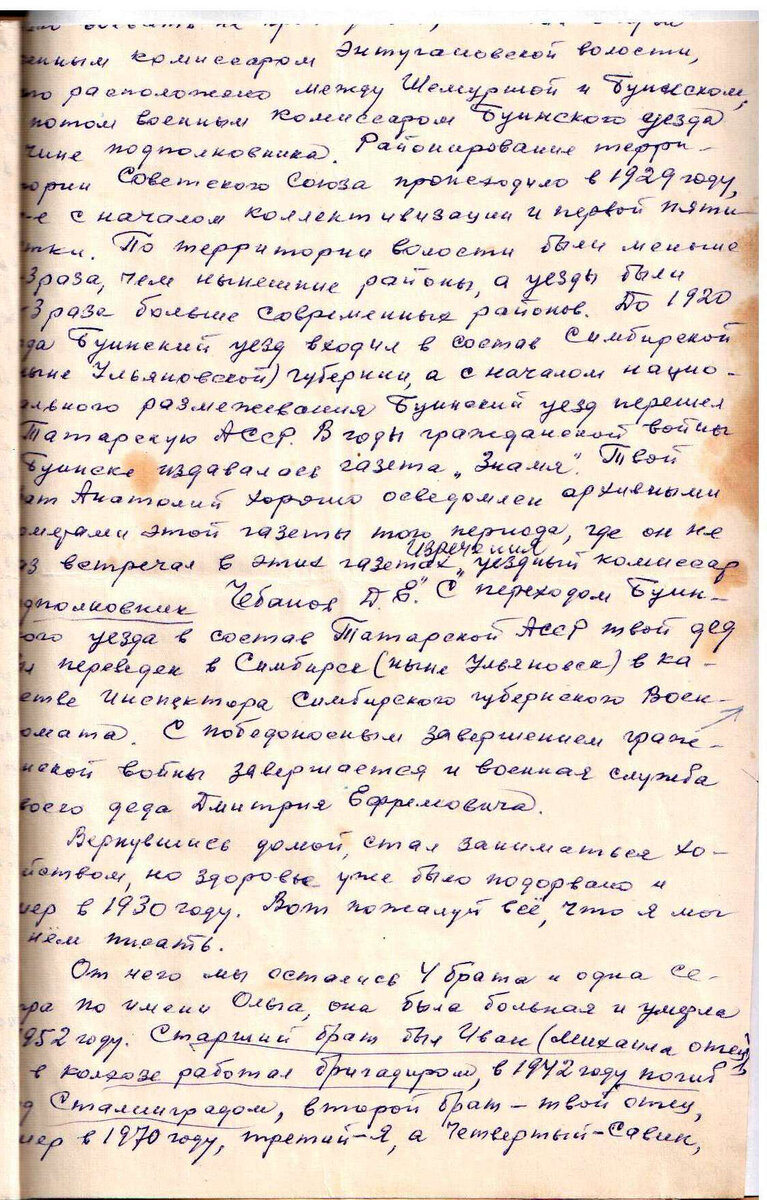 енным комиссаром Энтугановской волости,
то расположено между Шемуршой и Буинском,
потом военным комиссаром Буинского уезда
чине подполковника. Районирование терри-
ории Советского Союза происходило в 1929 году,
-е с началом коллективизации и первой пяти-
тки. По территории волости были меньше
-3 раза, чем нынешние районы, а уезды были
-3 раза больше современных районов. До 1920
да Буинский уезд входил в состав Симбирской
ныне Ульяновской) губернии, а с началом нацио-
ального размежевания Буинский уезд перешел
Татарскую АССР. В годы гражданской войны
Буинске издавалась газета „Знамя". Твой
ат Анатолий хорошо осведомлен архивными
омерами этой газеты того периода, где он не
аз встречал в этих газетах изречения „уездный комиссар
дполковник Чебанов Д. Е." С переходом Буин-
ого уезда в состав Татарской АССР твой дед
л переведен в Симбирск (ныне Ульяновск) в ка-
естве инспектора Симбирского губернского Воен-
омата. С победоносным завершением граж-
нской войны завершается и военная служба
воего деда Дмитрия Ефремовича.
Вернувшись домой, стал заниматься хо-
йством, но здоровье уже было подорвано и
мер в 1930 году. Вот пожалуй всё, что я мог
нём писать.
От него мы остались 4 брата и одна се-
тра по имени Ольга, она была больная и умерла
1952 году. Старший брат был Иван (Михаила отец)
в колхозе работал бригадиром, в 1942 году погиб
д Сталинградом, второй брат – твой отец,
мер в 1970 году, третий – Я, а четвертый – Савин,